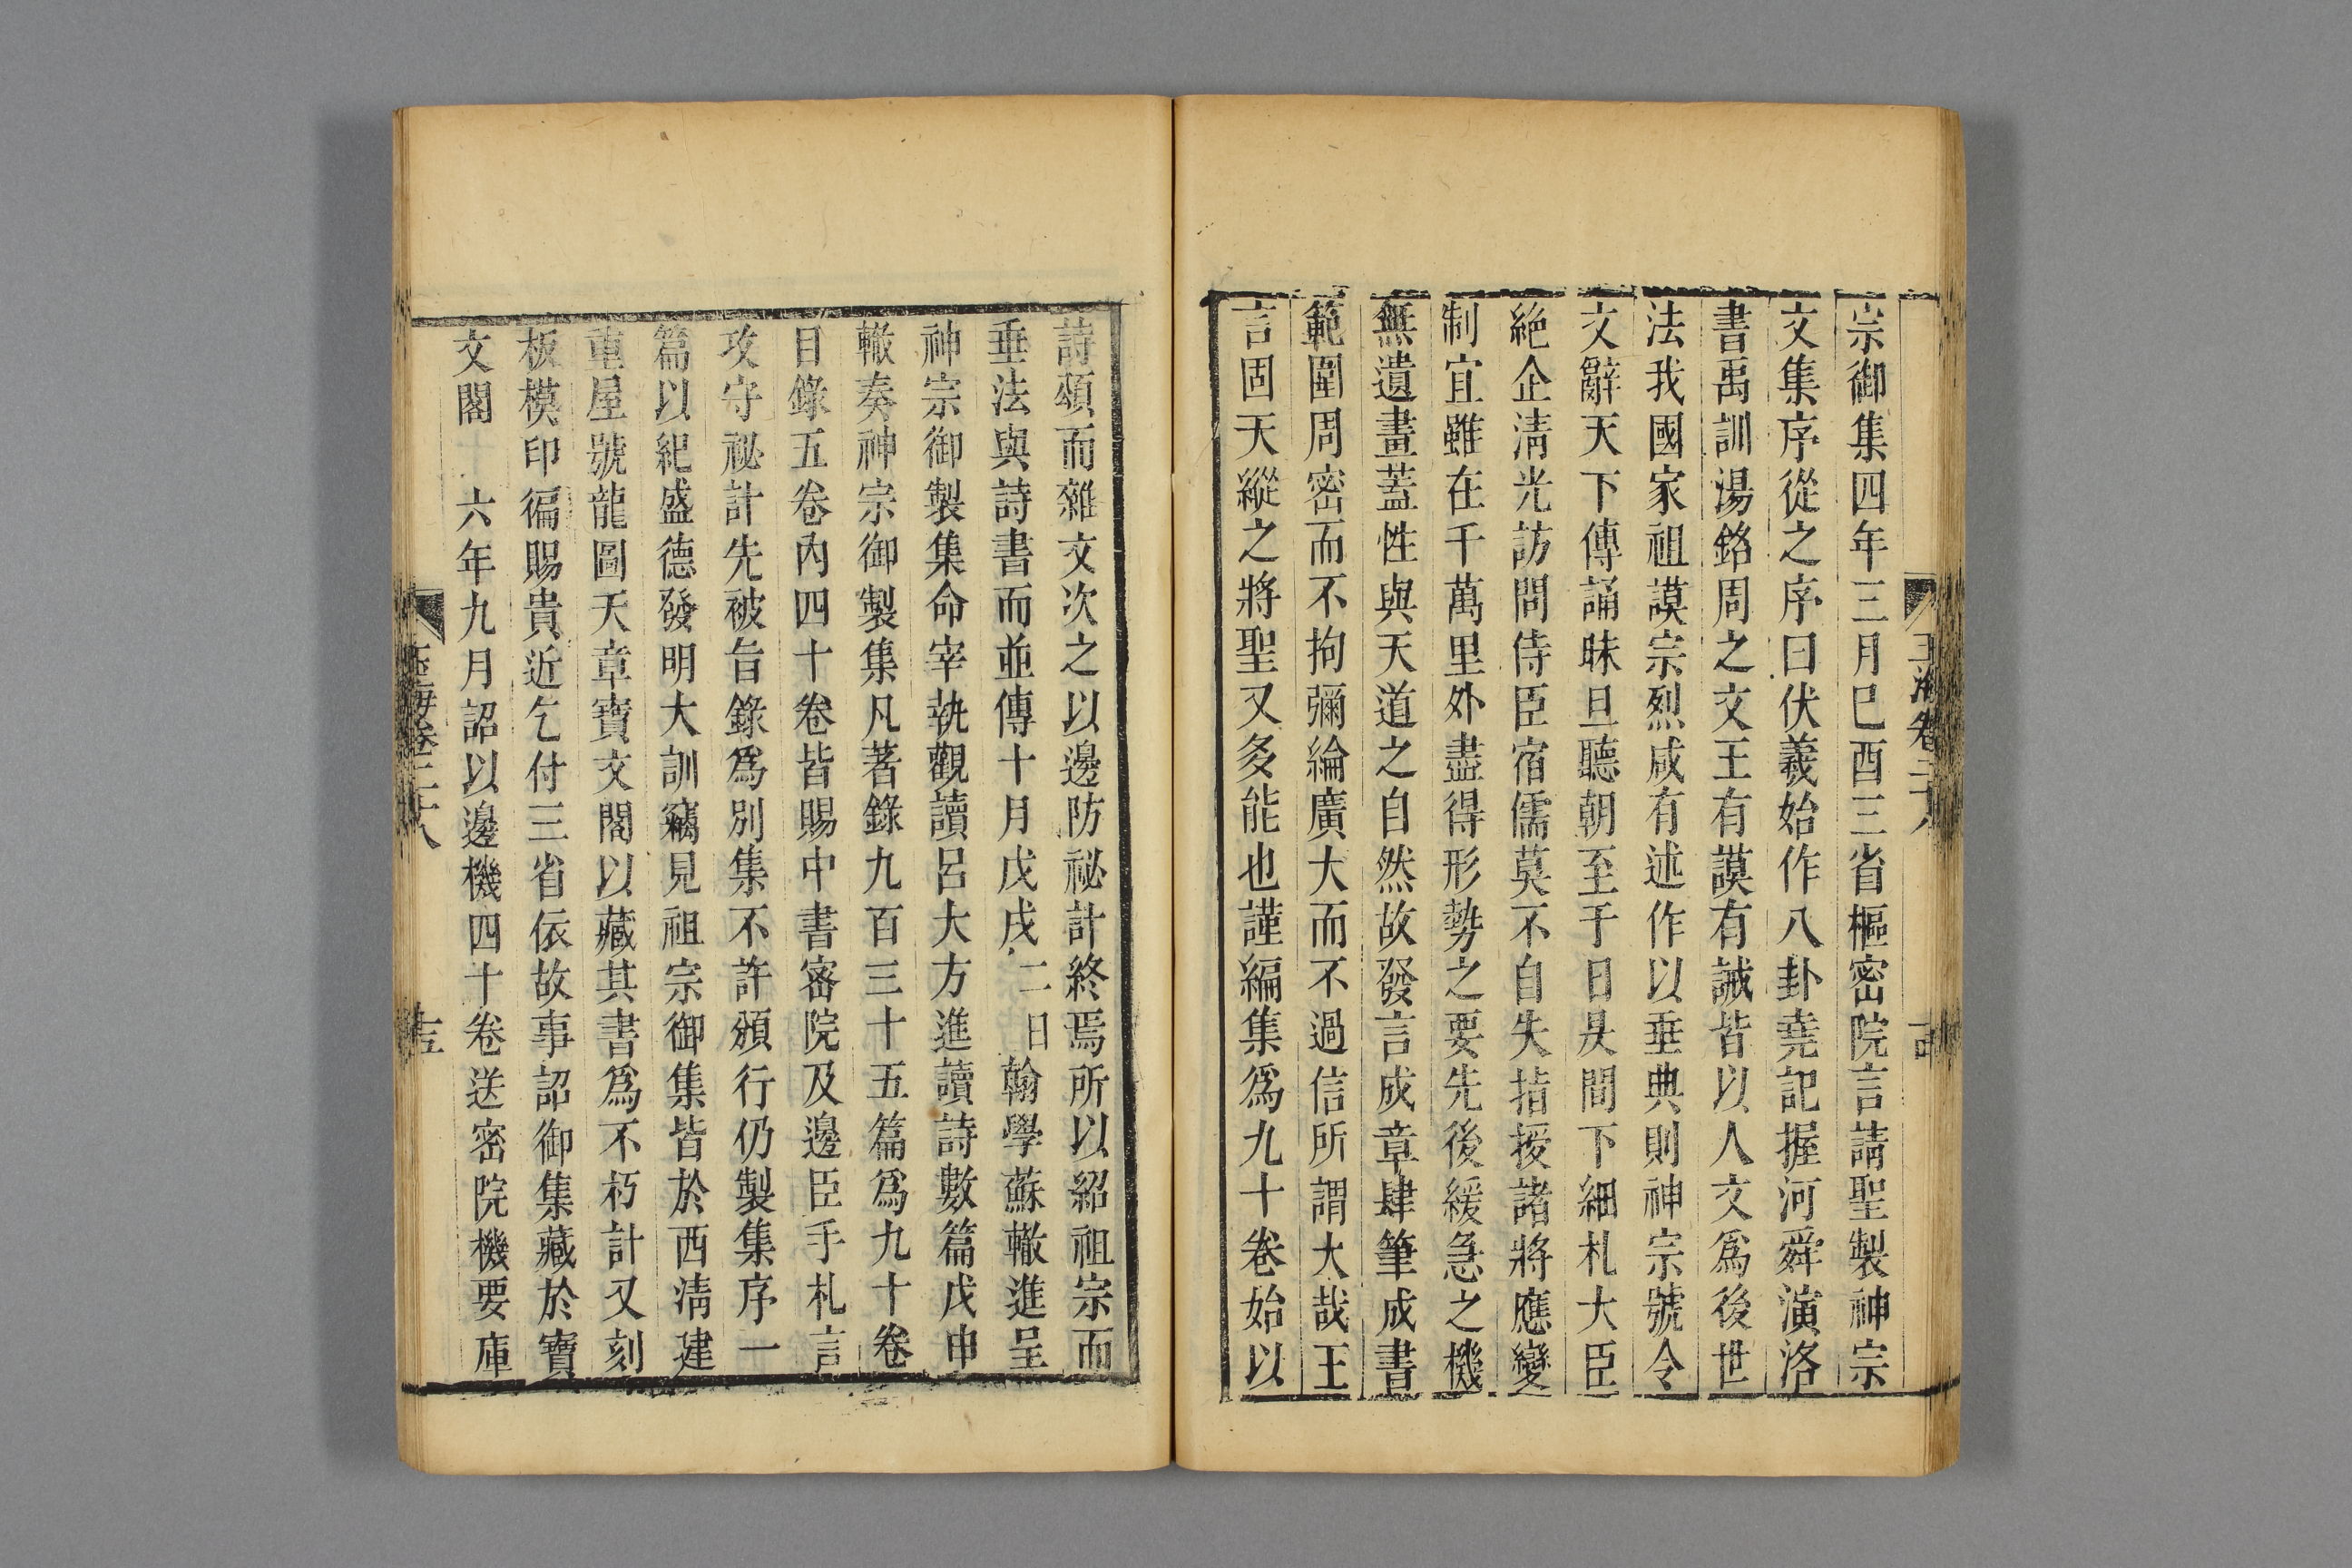 宗御集四年三月巳酉三省樞密院言請聖製神宗
文集序從之序曰伏羲始作八卦堯記握河舜演洛
書禹訓湯銘周之文王有謨有誡皆以人文爲後世
法我國家祖謨宗烈咸有述作以垂典則神宗號令
文辭天下傳誦昧旦聽朝至于日昃間下細札大臣
絶企淸光訪問侍臣宿儒莫不自失指授諸將應變
制宜雖在千萬里外盡得形勢之要先後緩急之機
無遺畫蓋性與天道之自然故發言成章肆筆成書
範圍周密而不拘彌綸廣大而不過信所謂大哉王
言固天縱之將聖又多能也謹編集爲九十卷始以
詩頌而雜文次之以邊防祕計終焉所以紹祖宗而
垂法與詩書而並傳十月戊戌二日翰學蘇轍進呈
神宗御製集命宰執觀讀呂大方進讀詩數篇戊申
轍奏神宗御製集凡著錄九百三十五篇爲九十卷
目錄五卷內四十卷皆賜中書密院及邊臣手札言
攻守祕計先被旨錄爲別集不許頒行仍製集序一
篇以紀盛德發明大訓竊見祖宗御集皆於西淸建
重屋號龍圖天章寶文閣以藏其書爲不朽計又刻
板模印徧賜貴近乞付三省依故事詔御集藏於寶
文閣 六年九月詔以邊機四十卷送密院機要庫
玉海卷二十八